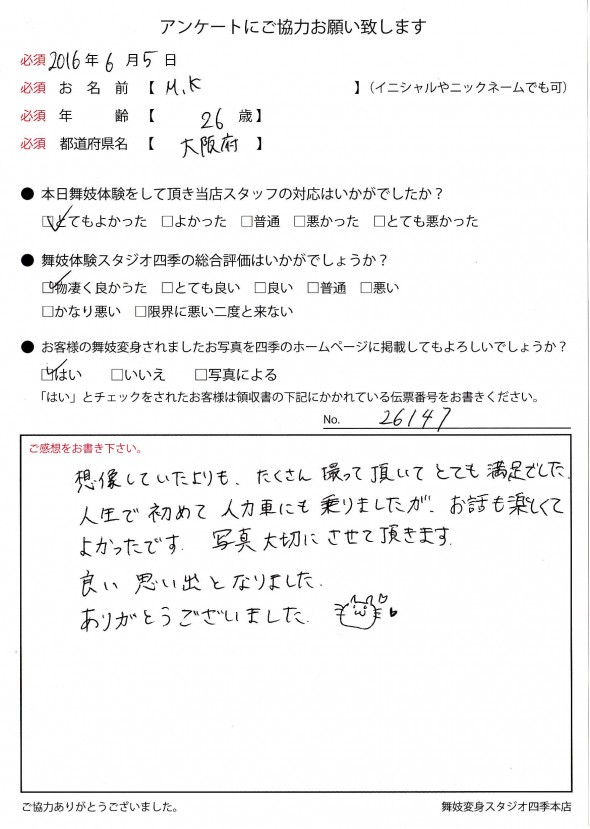 アンケートにご協力お願い致します
必須 2016年 6 月 5 日
必須 お 名 前 【 M.K 】（イニシャルやニックネームでも可）
必須 年 齢 26 歳】
必須 都道府県名 【 大阪府 】
● 本日舞妓体験をして頂き当店スタッフの対応はいかがでしたか？
☑とてもよかった □よかった □普通 □悪かった □とても悪かった
● 舞妓体験スタジオ四季の総合評価はいかがでしょうか？
☑物凄く良かった □とても良い □良い □普通 □悪い
□かなり悪い □限界に悪い二度と来ない
● お客様の舞妓変身されましたお写真を四季のホームページに掲載してもよろしいでしょうか？
☑はい □いいえ □写真による
「はい」とチェックをされたお客様は領収書の下記にかかれている伝票番号をお書きください。
No. 26147
ご感想をお書き下さい。
想像していたよりも、たくさん撮って頂いてとても満足でした.
人生で初めて人力車にも乗りましたが、お話も楽しくて
よかったです. 写真大切にさせて頂きます.
良い思い出となりました.
ありがとうございました.
ご協力ありがとうございました。
舞妓変身スタジオ四季本店